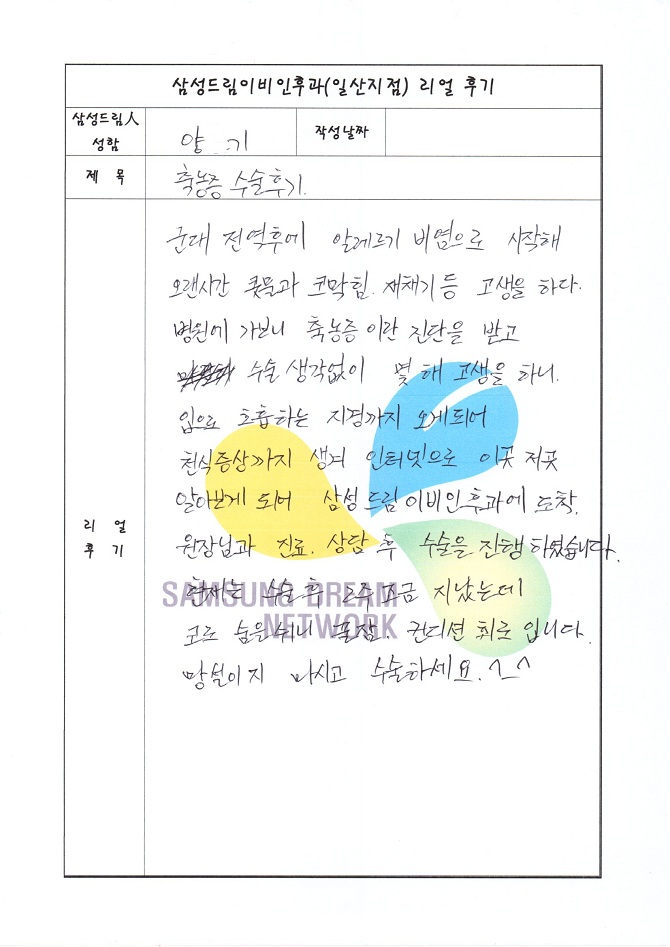 삼성드림이비인후과(일산지점) 리얼 후기
삼성드림人
성함
양 기
작성날짜
제 목
축농증 수술후기.
리 얼
후 기
군대 전역후에 알레르기 비염으로 시작해
오랜시간 콧물과 코막힘. 재채기등 고생을 하다.
병원에 가보니 축농증이란 진단을 받고
수술 생각없이 몇 해 고생을 하니.
입으로 호흡하는 지경까지 오게되어
천식증상까지 생겨 인터넷으로 이곳 저곳
알아보게 되어 삼성드림이비인후과에 도착.
원장님과 진료. 상담 후 수술을 진행하였습니다.
현재는 수술후 2주조금 지났는데
코로 숨을쉬니 꿀잠. 컨디션 최고입니다.
망설이지 마시고 수술하세요. ^_^
SAMSUNG DREAM
NETWORK